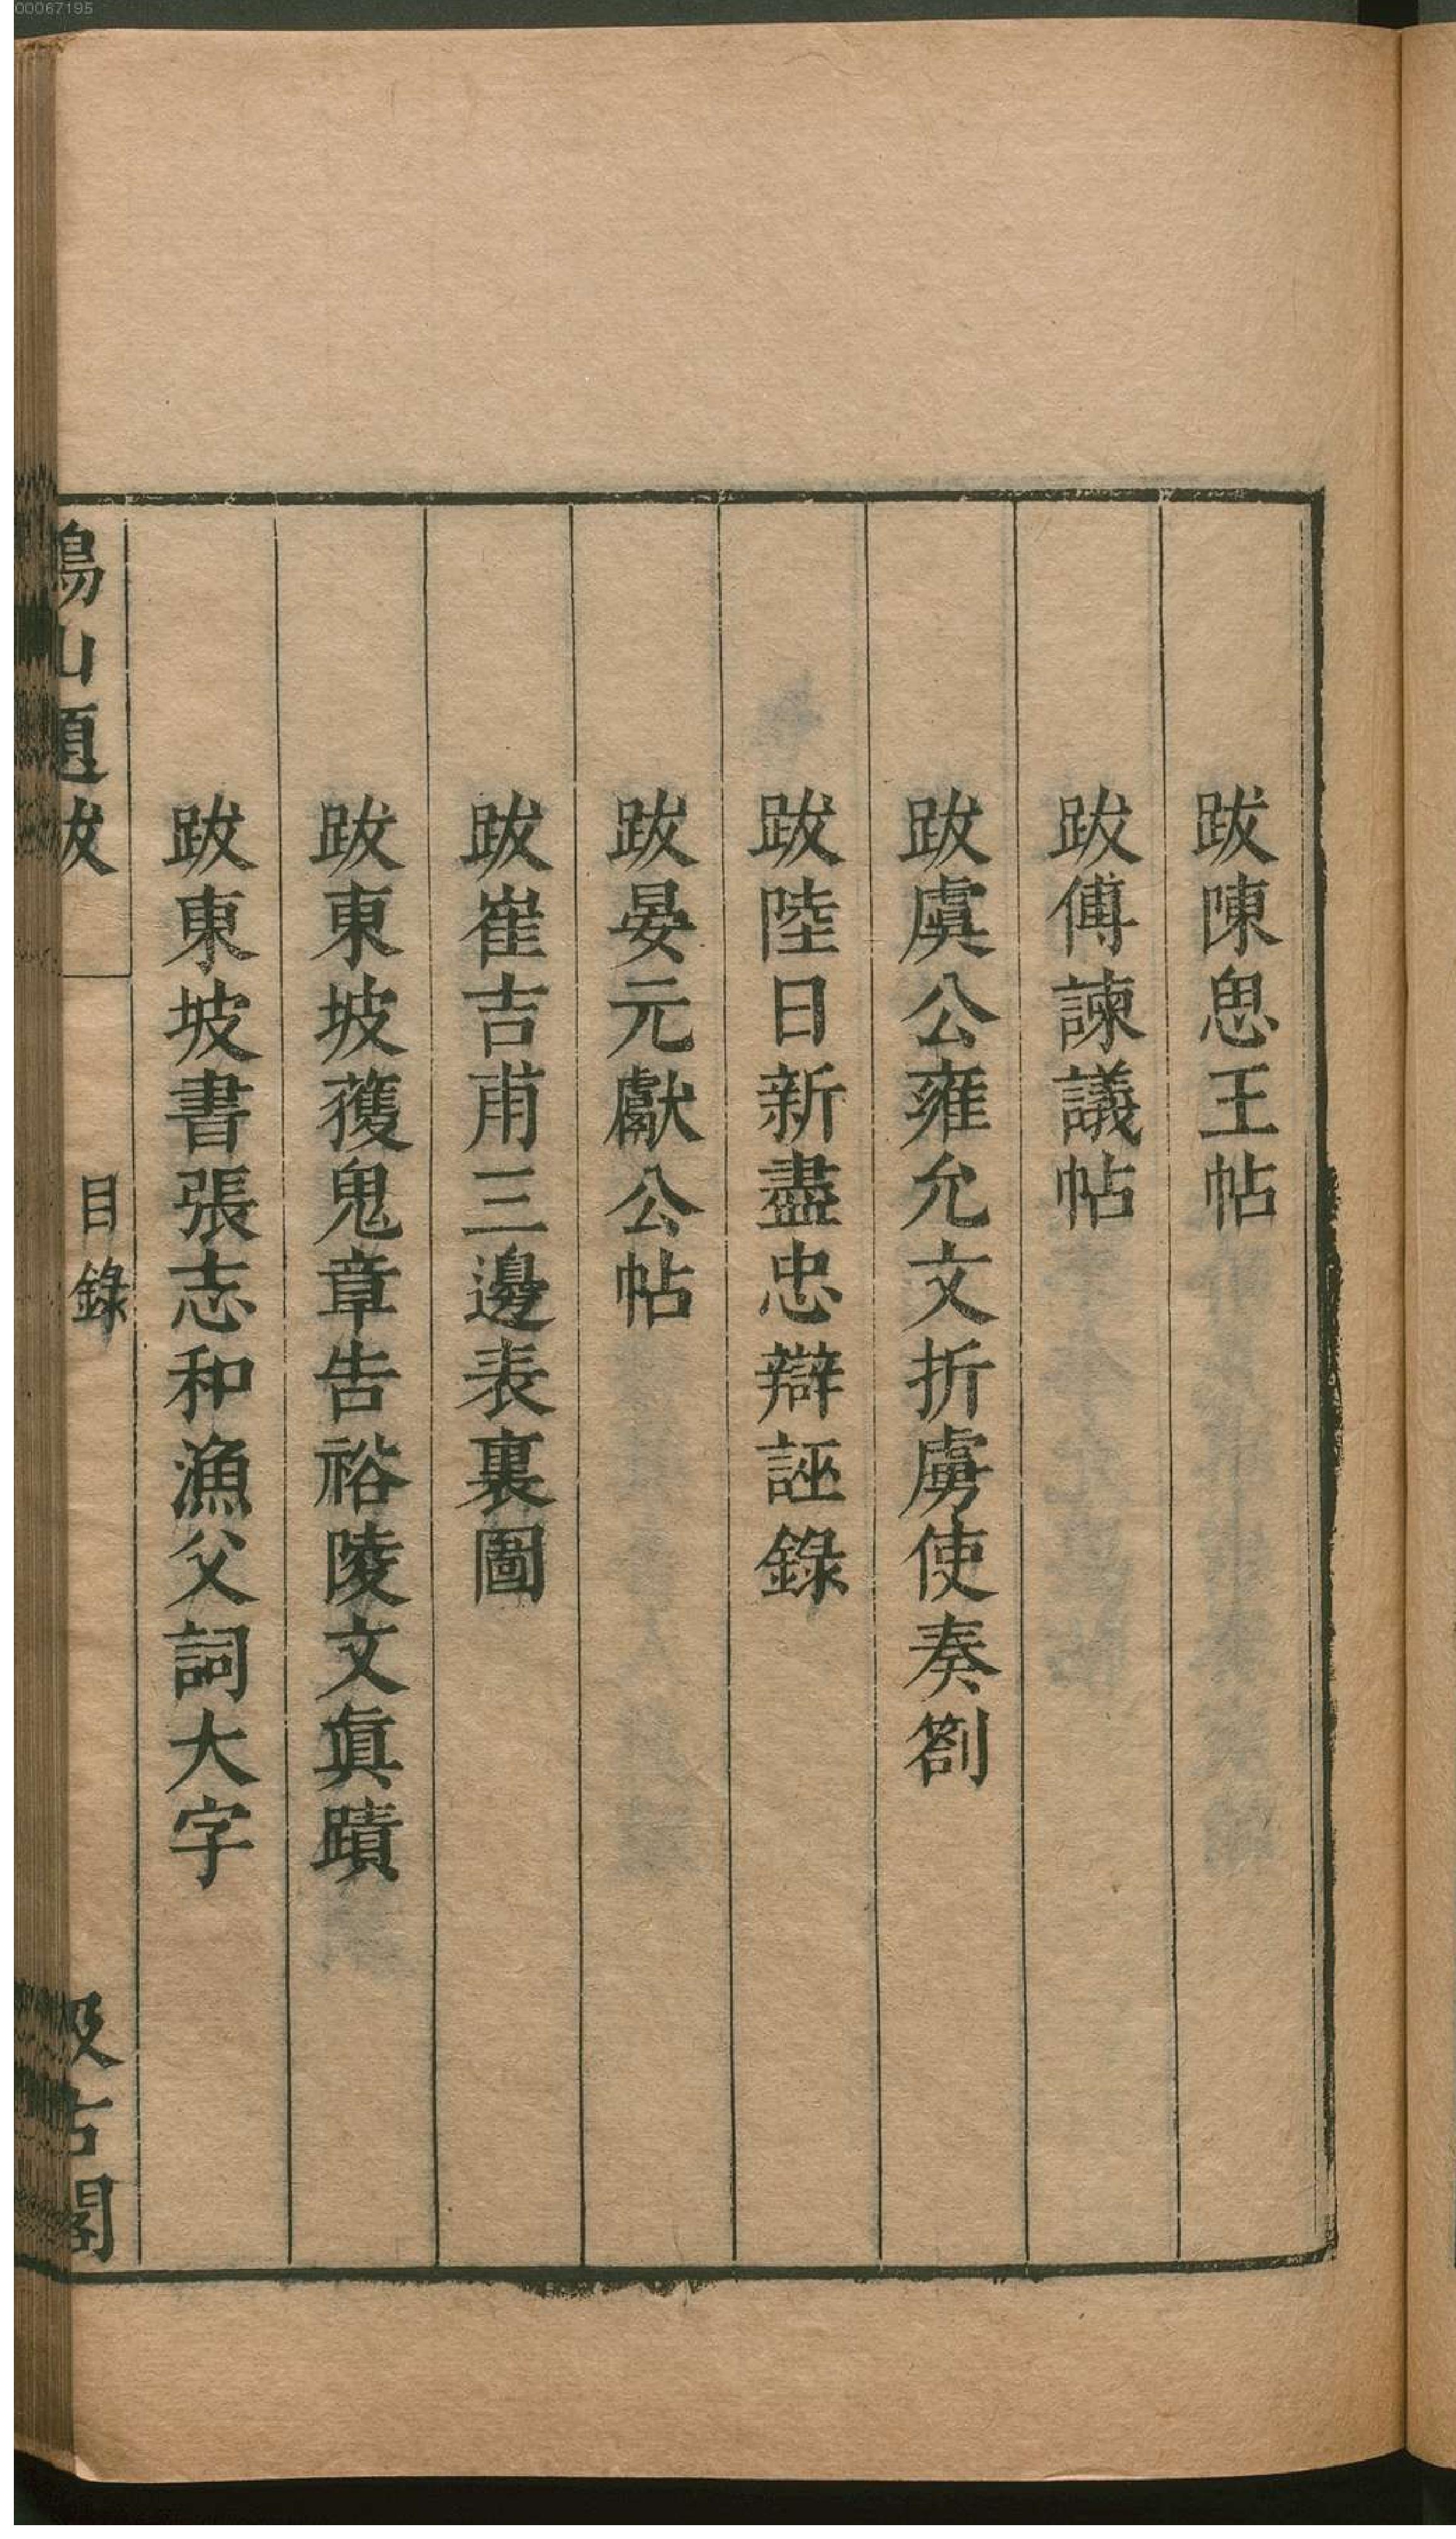 00067195
跋陳思王帖
跋傅諫議帖
跋虞公雍允文折虜使奏劄
跋陸日新盡忠辯誣錄
跋晏元獻公帖
跋崔吉甫三邊表裏圖
跋東坡獲鬼章告裕陵文真蹟
跋東坡書張志和漁父詞大字
鶴山題跋
目錄
汲古閣